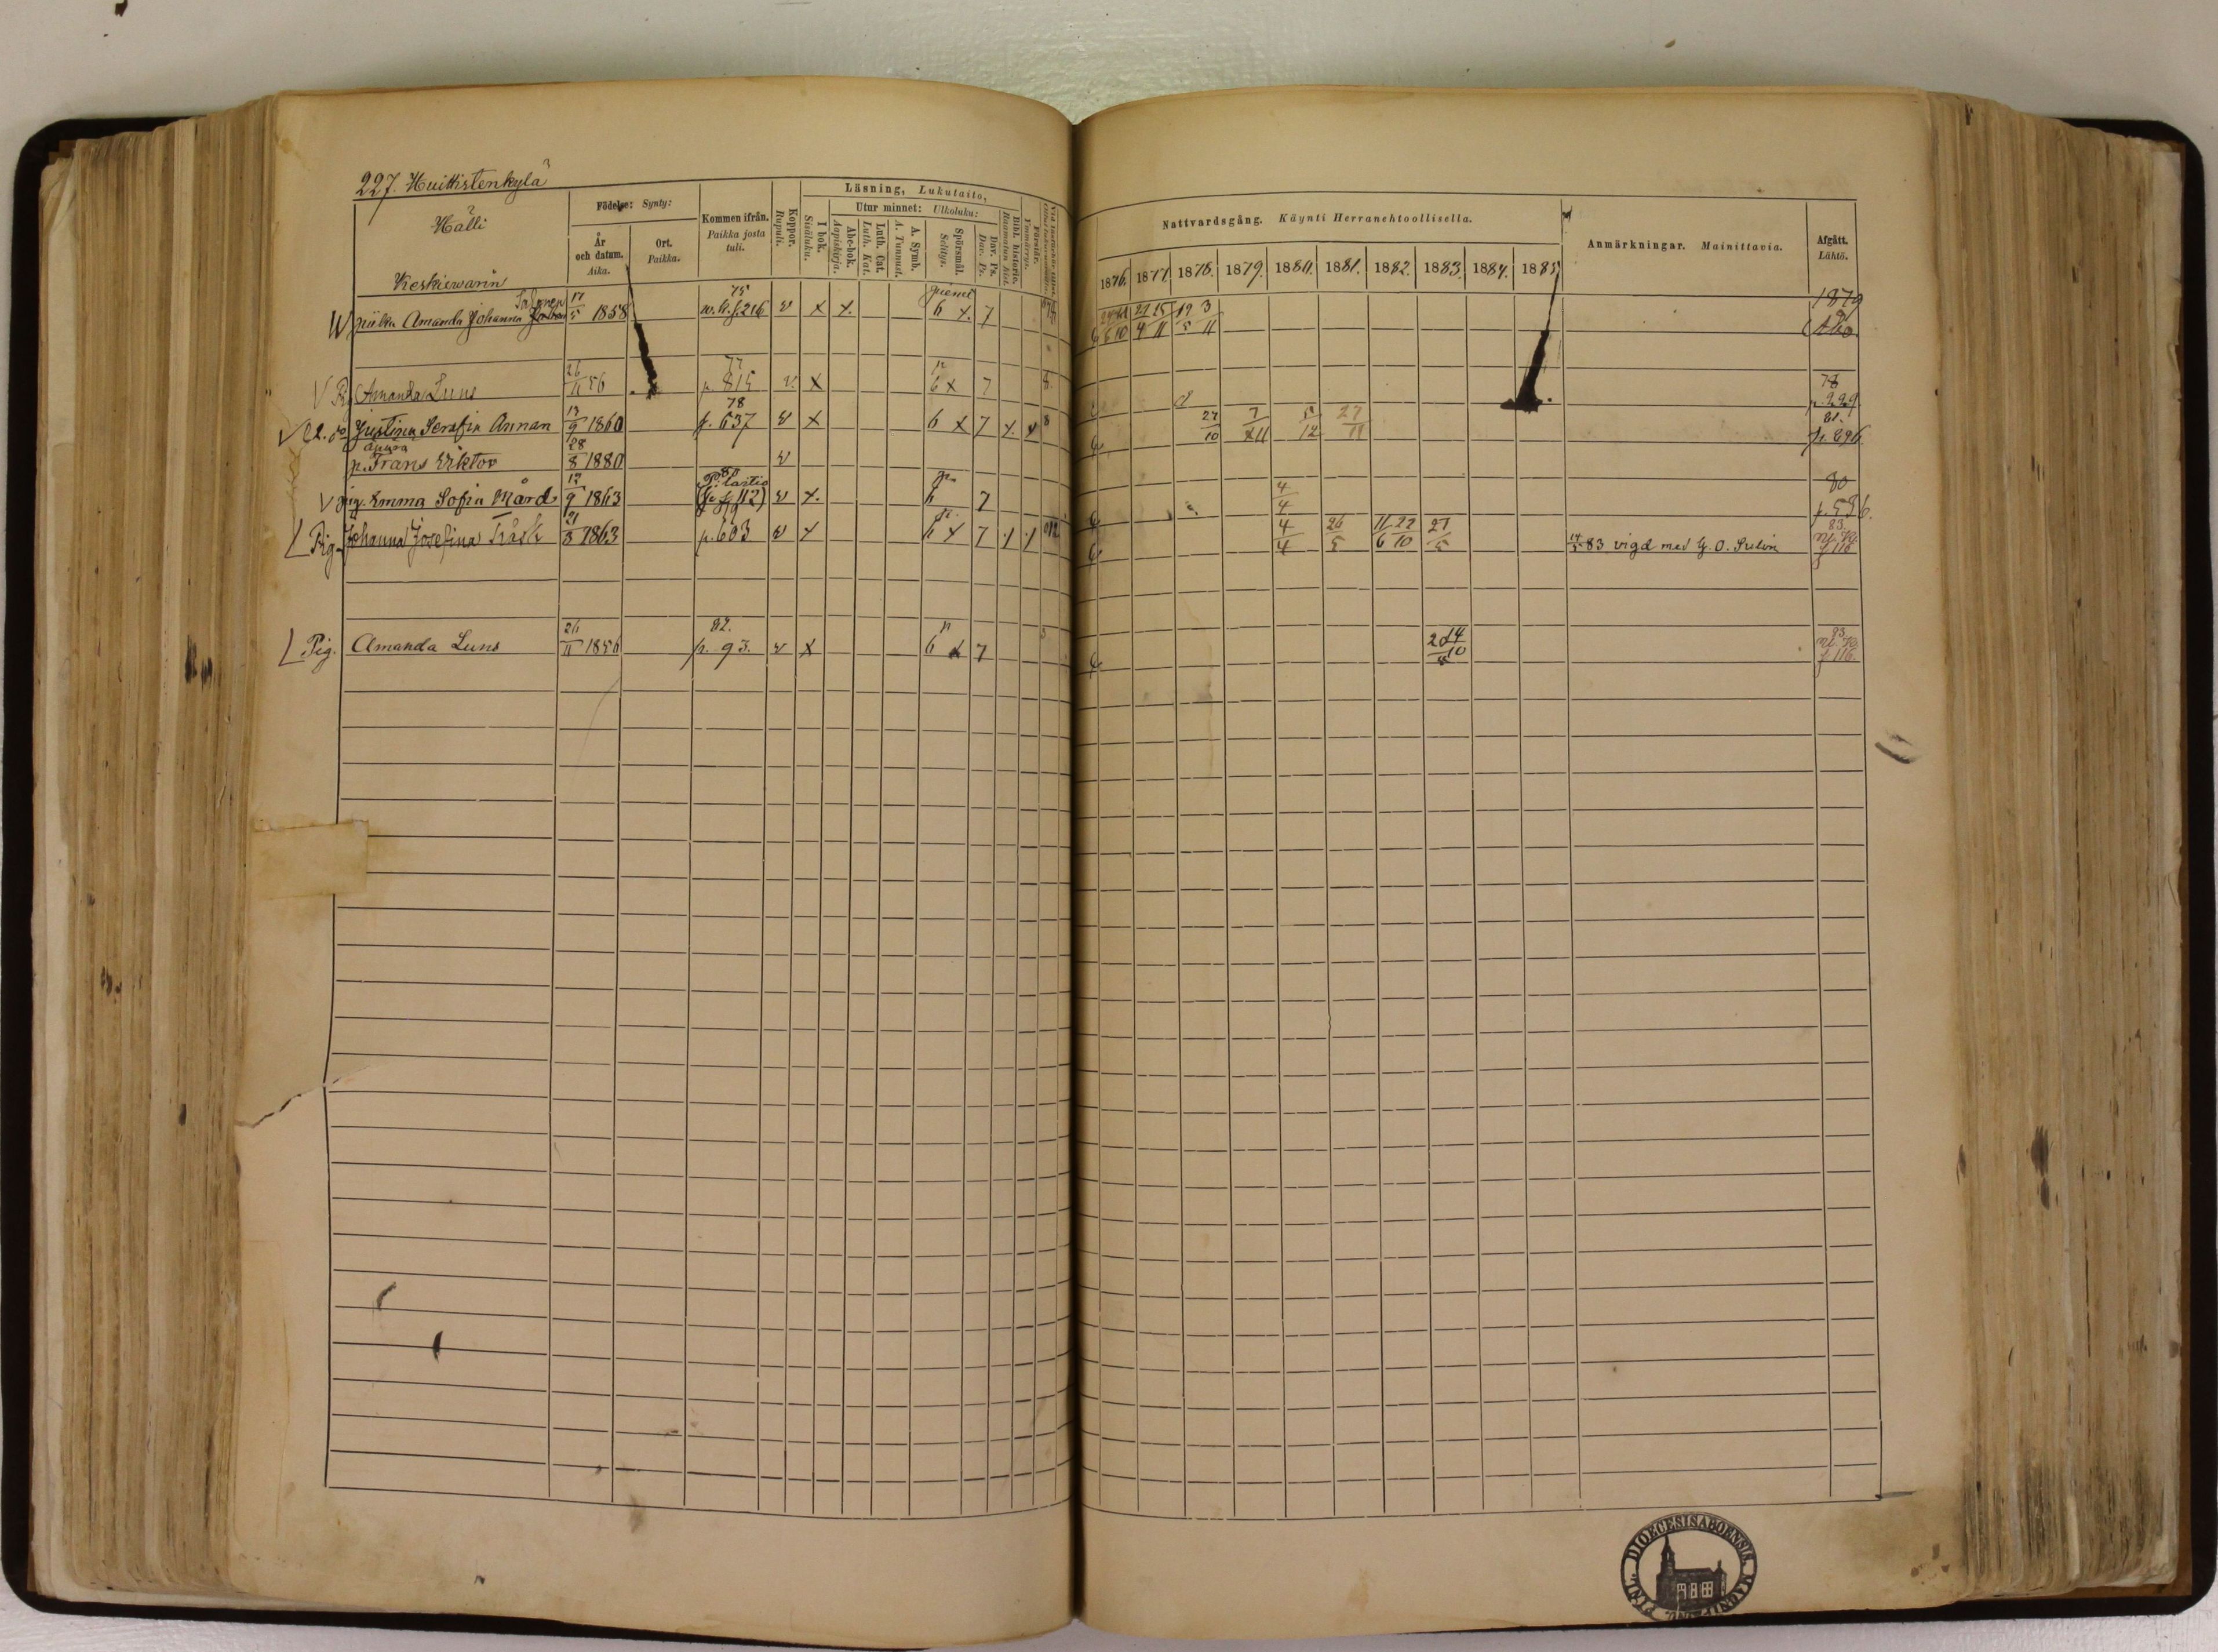 227. Huittistenkylä
Hälli
Keskiewarin
Födelse: Synty:
År och datum. Aika.
Ort. Paikka.
Kommen ifrån. Paikka josta tuli.
Koppor. Rupuli.
Läsning, Lukutaito,
I bok. Sisäluku.
Utur minnet: Ulkoluku:
Abc-bok. Aapiskirja.
Luth. Cat. Luth. Kat.
A. Symb. A. Tunnust.
Spörsmål. Selitys.
Dav. Ps. Dav. Ps.
Bibl. historie. Raamatun hist.
Förstår. Ymmärrys.
Nattvardsgång. Käynti Herranehtoollisella.
1876. 1877. 1878. 1879. 1880. 1881. 1882. 1883. 1884. 1885.
Anmärkningar. Mainittavia.
Afgått. Lähtö.
piika Amanda Johanna Salonen 17/5 1858 75 v x x. 6 x. 7 19/5 3/11 1879 Åbo
Pig Amanda Luns 26/11 56 77 p. 815 v. x 6 x 7 78 p. 229
Justina Serafia Annan 13/9 1860 78 p. 637 v x 6 x 7 x x 8 27/10 7/11 5/12 27/11 81. p. 896
Frans Viktor 28/8 1880 v
pig. Emma Sofia Mård 12/9 1863 v x. 6 7 4/4 80 p. 536.
Pig. Johanna Josefina Träsk 21/3 1863 p. 603 v x 6 x 7 4/4 26/5 11/6 22/10 27/5 14/5 83 vigd med G. O. Sulin 83. f 116
Pig. Amanda Luns 26/11 1856 82. p. 93. v x 6 x 7 20/5 14/10 83. f 116.
DIOECESIS ABOENSIS